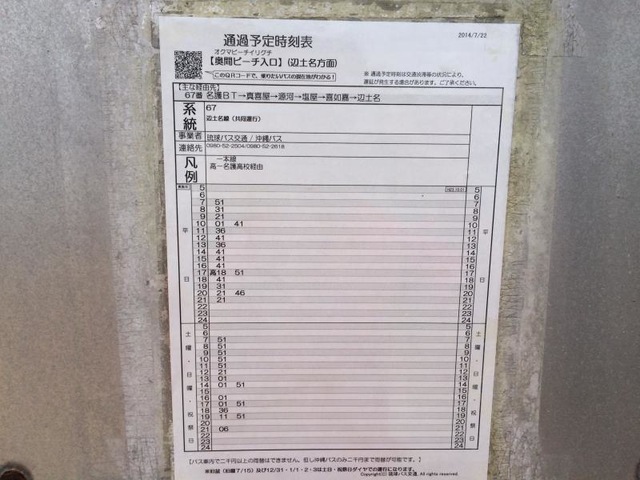 通過予定時刻表
2014/7/22
オクマビーチイリグチ
【奥間ビーチ入口】(辺土名方面)
このQRコードで、乗りたいバスの現在地がわかる!
※ 通過予定時刻は交通渋滞等の状況により、
遅延が発生する場合があります。ご了承ください。
【主な経由先】
67番 名護BT→真喜屋→源河→塩屋→喜如嘉→辺土名
系統
67
辺土名線 (共同運行)
事業者 琉球バス交通 / 沖縄バス
連絡先 0980-52-2504/0980-52-2618
凡例
一本線
高一名護高校経由
平日
5 5
6 6
7 51 7
8 31 8
9 21 9
10 01 41 10
11 36 11
12 41 12
13 36 13
14 41 14
15 41 15
16 41 16
17 高18 51 17
18 41 18
19 31 19
20 21 46 20
21 21 21
22 22
23 23
24 24
土曜・日曜・祝祭日
5 5
6 6
7 51 7
8 51 8
9 51 9
10 51 10
11 51 11
12 21 12
13 01 13
14 01 51 14
15 15
16 01 16
17 01 51 17
18 36 18
19 11 51 19
20 20
21 06 21
22 22
23 23
24 24
【バス車内で二千円以上の両替はできません。但し沖縄バスのみ二千円まで両替が可能です。】
※お盆(旧暦7/15)及び12/31・1/1・2・3は土日・祝祭日ダイヤでの運行になります。
Copyright(C) 琉球バス交通, All rights reserved.